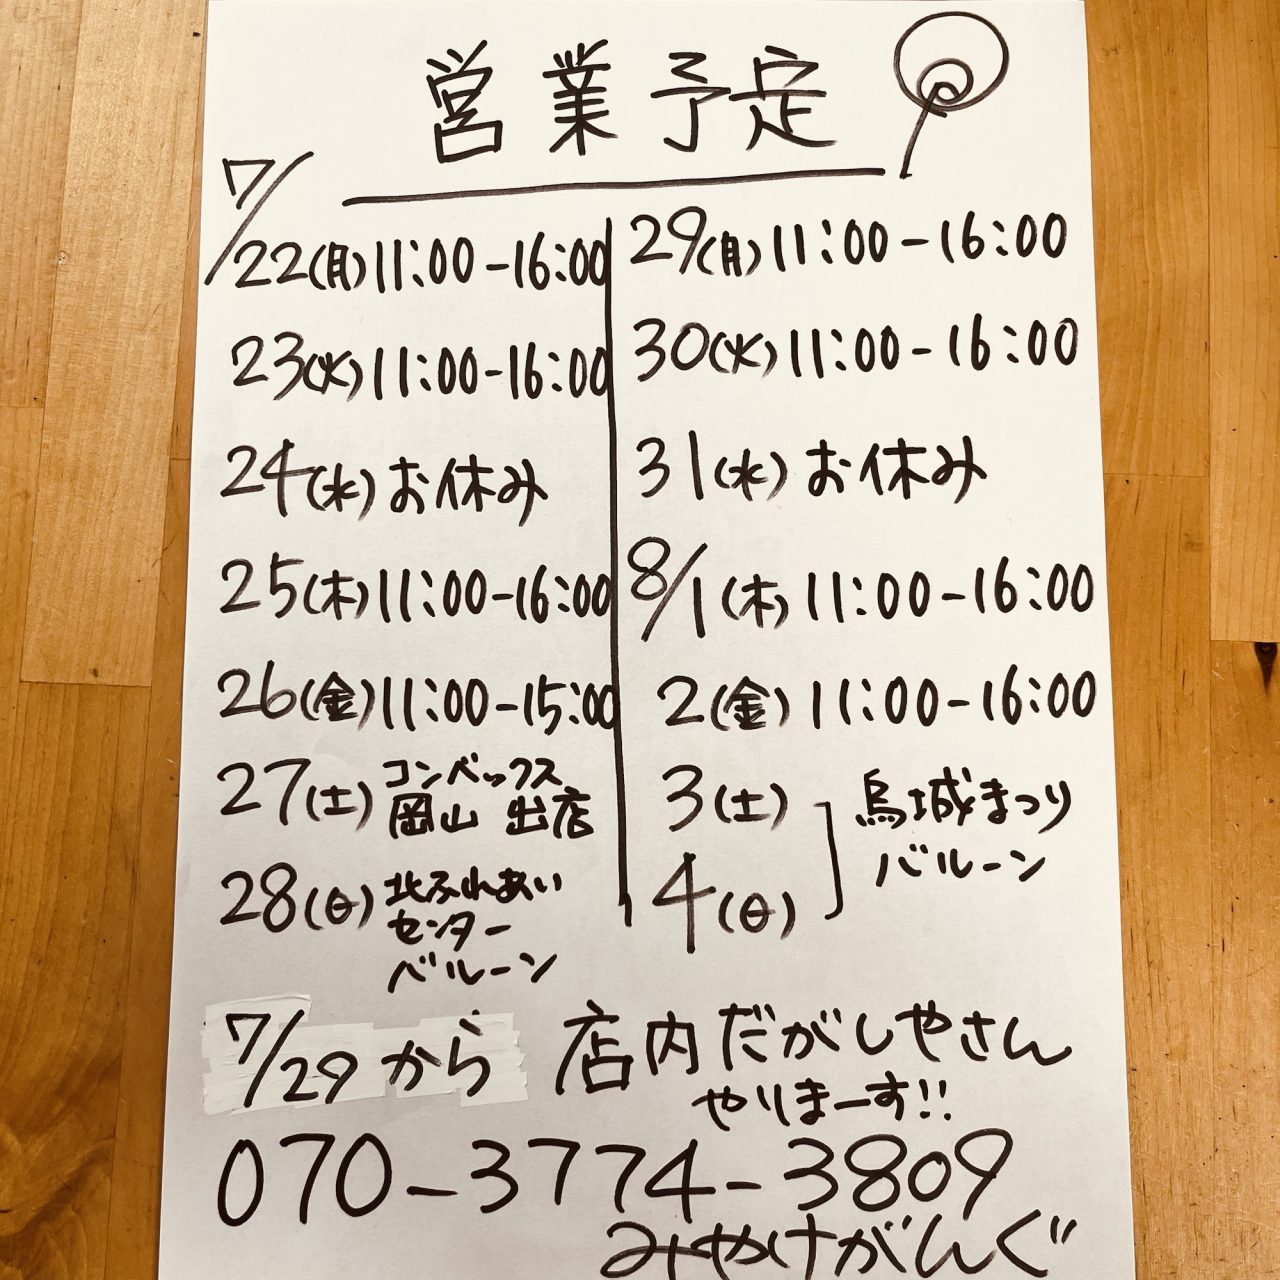 営業予定
7/22(月)11:00-16:00
23(火)11:00-16:00
24(水)お休み
25(木)11:00-16:00
26(金)11:00-15:00
27(土)コンベックス
岡山 出店
28(日)北ふれあい
センター
バルーン
29(月)11:00-16:00
30(火)11:00-16:00
31(水)お休み
8/1(木)11:00-16:00
2(金)11:00-16:00
3(土)
4(日)
烏城まつり
バルーン
7/29から 店内だがしやさん
やりまーす!!
070-3774-3809
みやけがんぐ